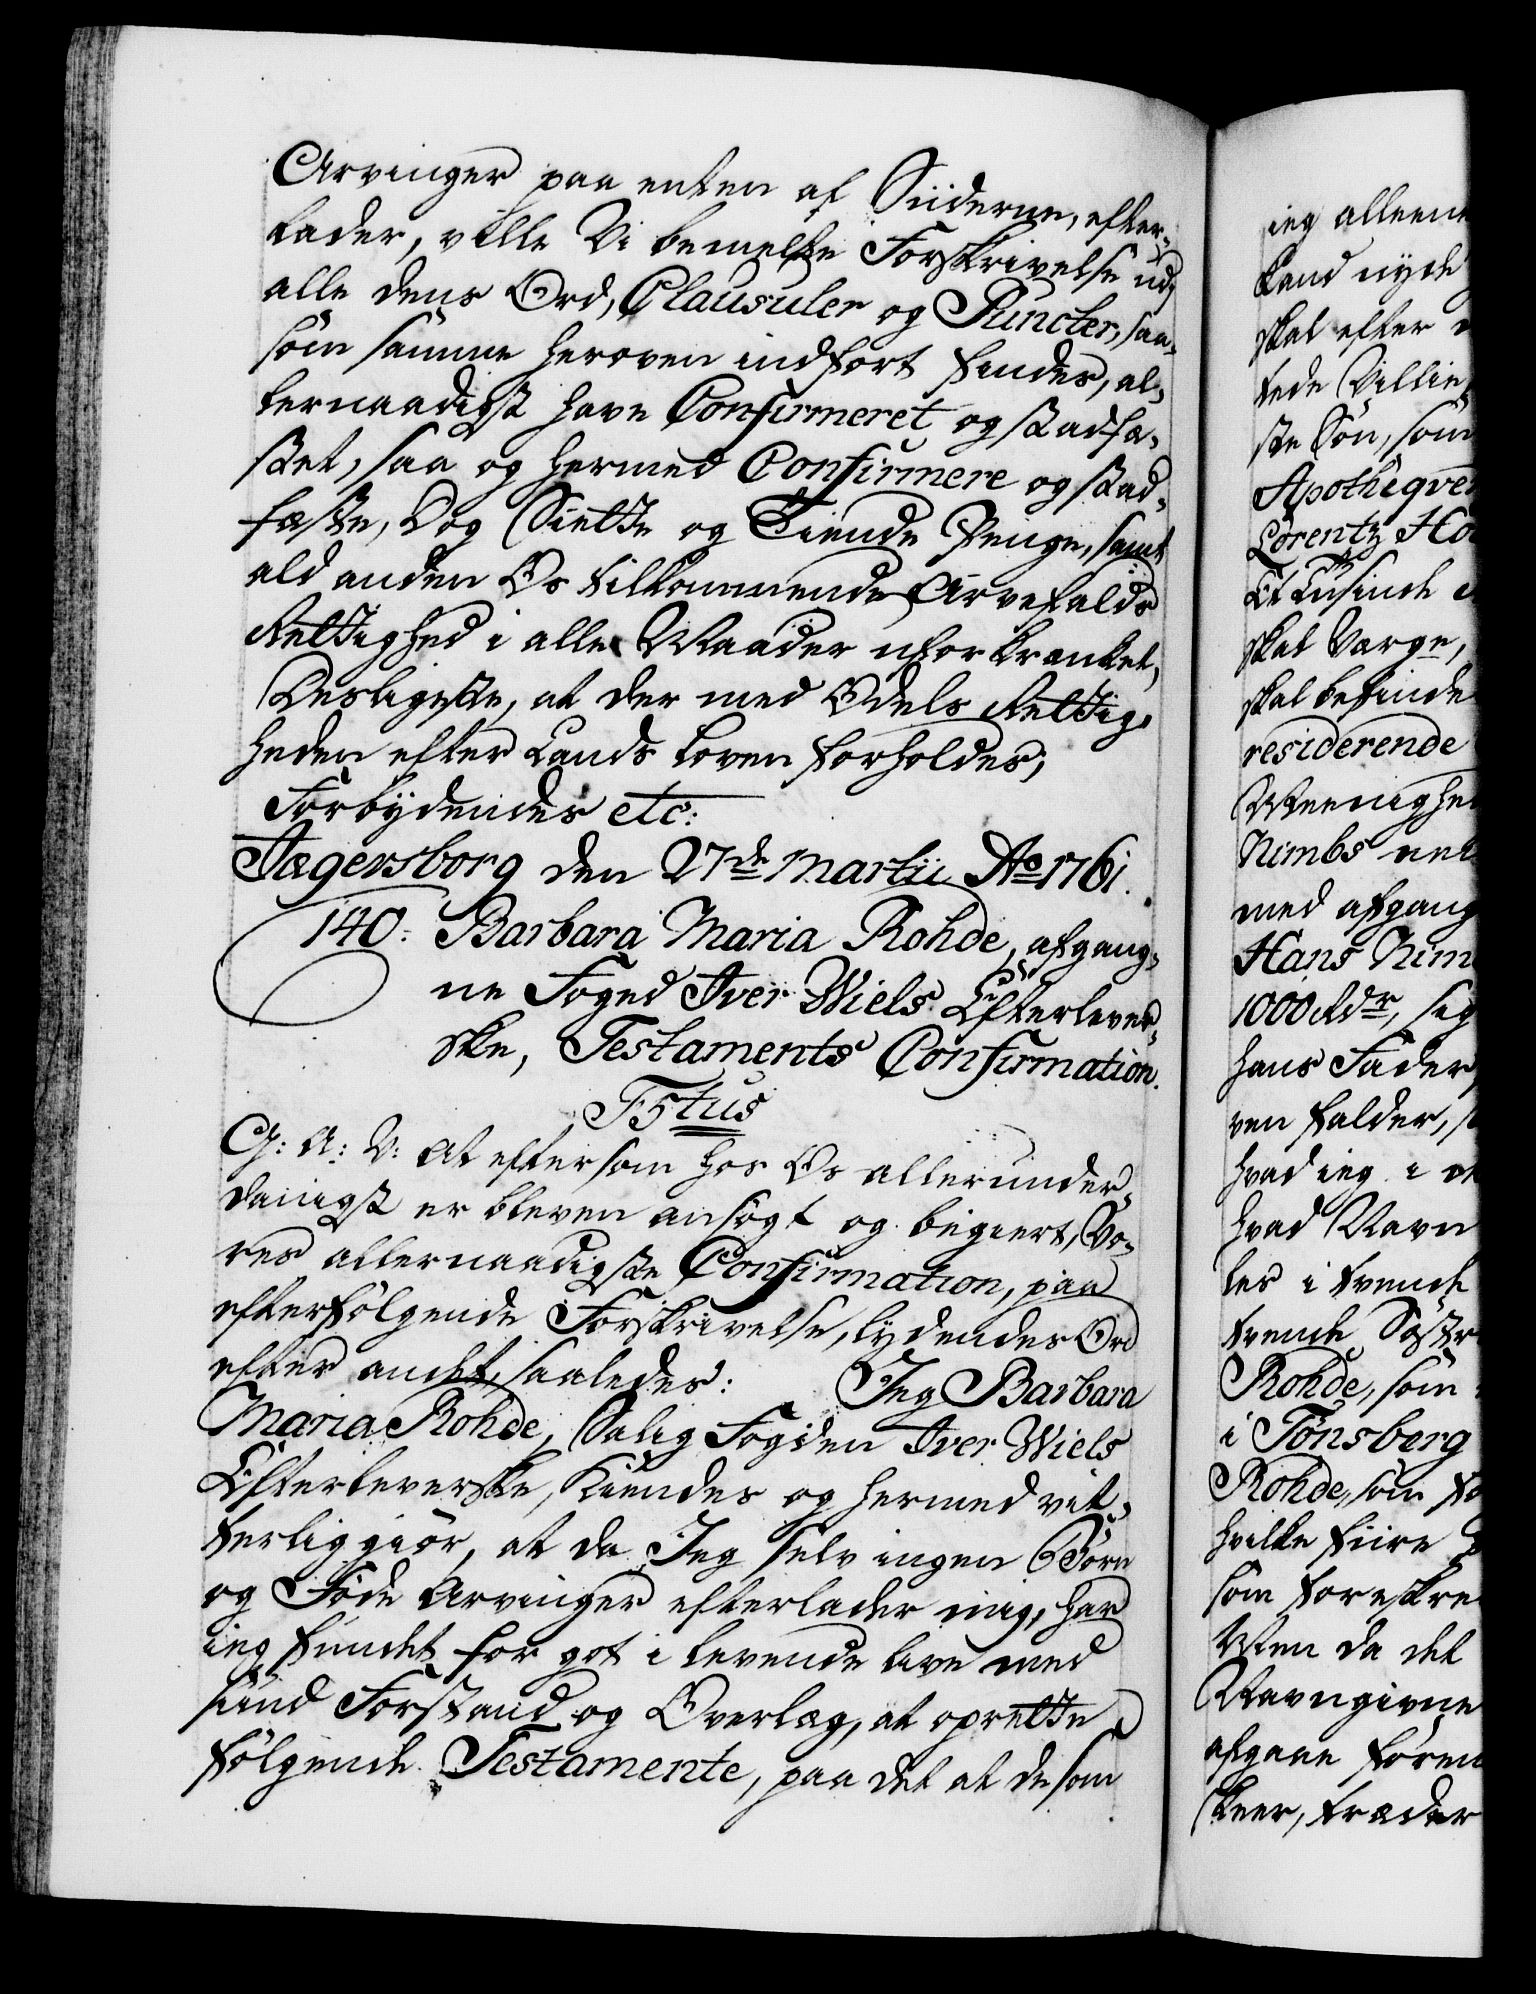 Arvinger paa enten af Siiderne, efter-
lader, ville Vi bemelte Forskrivelse udj
alle dens Ord, Clausuler og Puncter, saa-
som samme heroven indfört findes, al-
lernaadigst have Confirmeret og stadfæ-
stet, saa og hermed Confirmere og stad-
fæste, Dog Siette og Tiende Penge, samt
ald anden Os tilkommende Arvefalds
Rettighed i alle Maader uforkranket,
Desligeste, at der med Odels Rettig-
heden efter Lands Loven forholdes;
Forbydendes etc:
Jægersborg den 27de Martii Ao 1761.
140. Barbara Maria Rohde, afgang-
ne Foged Iver Wiels Efterlever-
ske, Testaments Confirmation.
F5tus
G: A: V: At eftersom hos Os allerunder-
danigst er bleven ansögt og begiert, Vo-
res allernaadigste Confirmation, paa
efterfölgende Forskrivelse, lydendes Ord
efter andet, saaledes: Jeg Barbara
Maria Rohde, Salig Fogden Iver Wiels
Efterleverske, Kiendes og hermed vit-
terliggiör, at da Jeg selv ingen Börn
og Föde Arvinger efterlader mig, har
ieg fundet for got i levende live med
sund Forstand og Overlæg, at oprette
fölgende Testamente, paa det at de som
ieg alleene
kand nyde
skal efter
tede Villie
ste Sön, som
Apotheqver
Lorentz
Et Tusinde
skal Varge,
skal befinde
residerende
Meenighe
Nimbs
med afgang
Hans Nim
1000 Rdr,
hans Fader
ven falder,
hvad ieg i
hvad Navn
les i tvende
tvende Söstr
Rohde, som
i Tönsberg
Rohde, som
hvilke fiire
som foreskre
Men da det
Navngivne
afgaae foren
skeer, træder